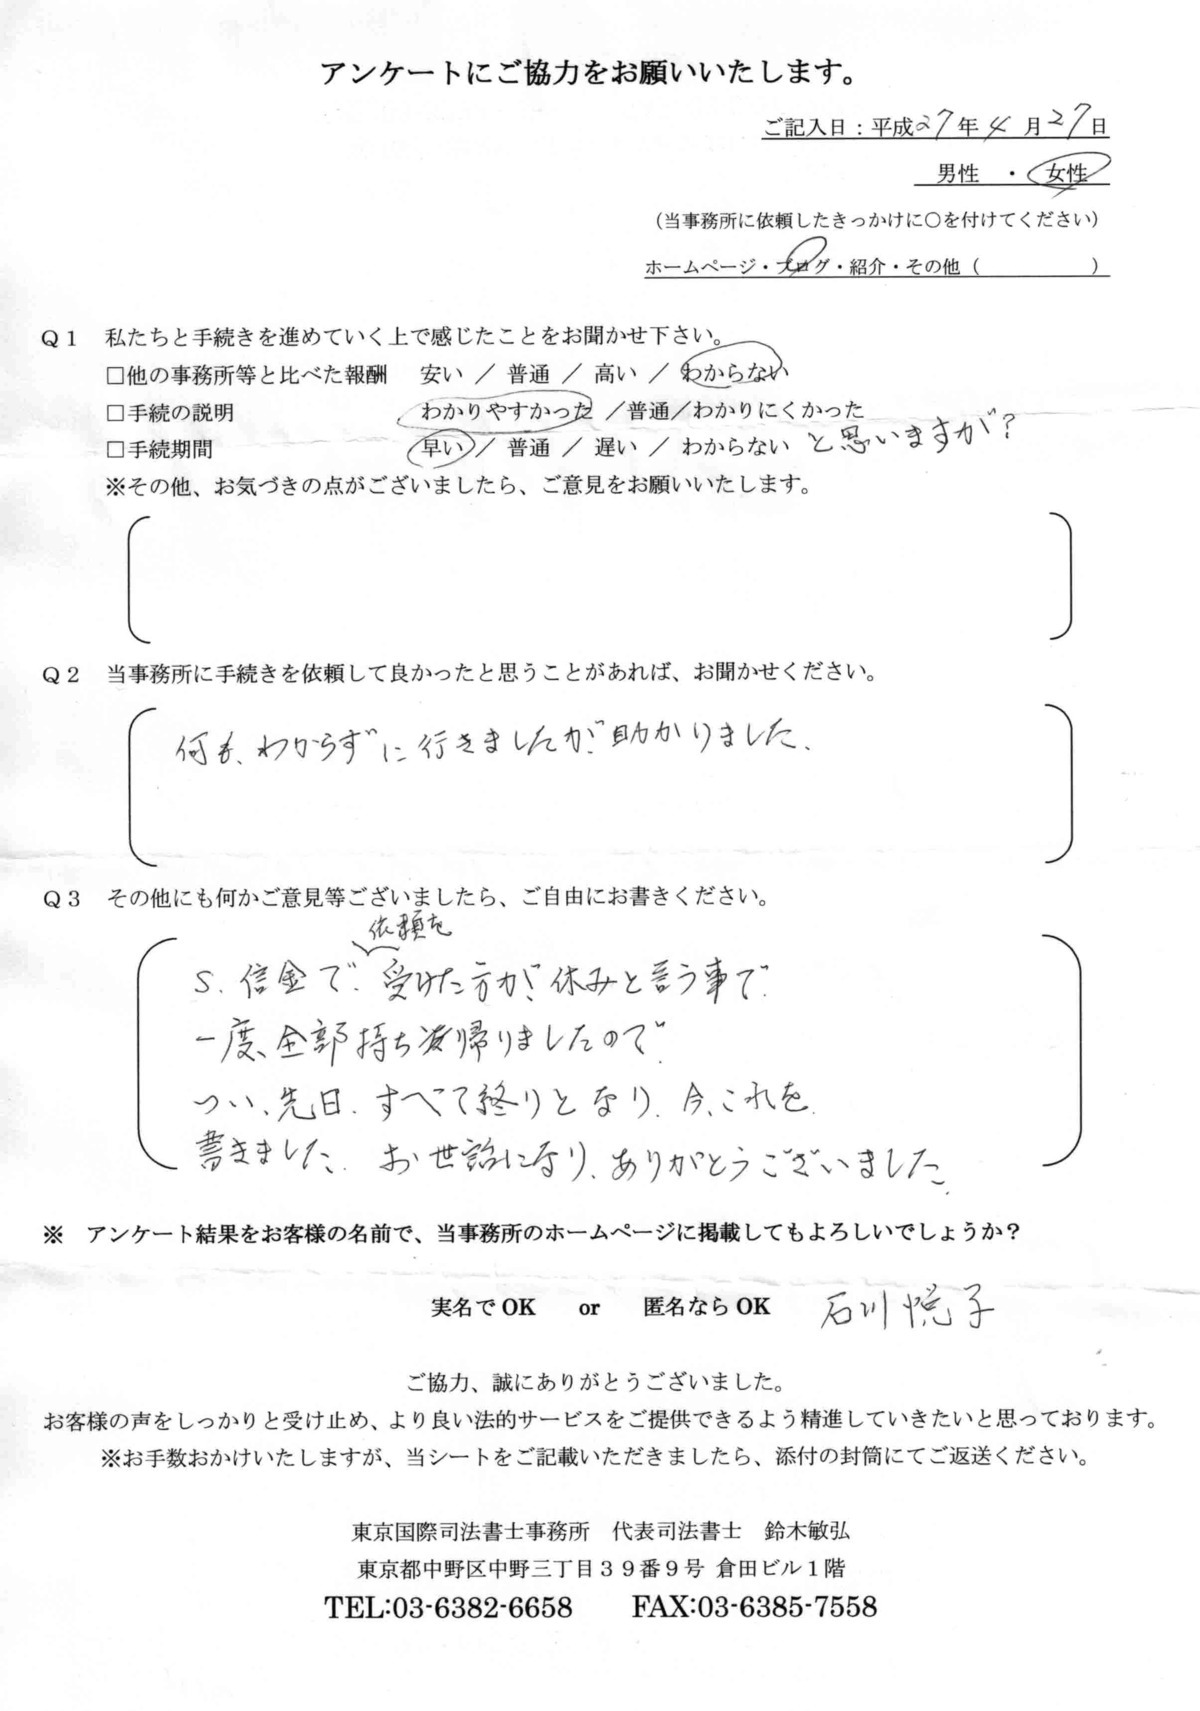 アンケートにご協力をお願いいたします。
ご記入日：平成27年4月27日
男性　・　女性
（当事務所に依頼したきっかけに○を付けてください）
ホームページ・ブログ・紹介・その他（　　　　　）
Q１　私たちと手続きを進めていく上で感じたことをお聞かせ下さい。
□他の事務所等と比べた報酬　安い ／ 普通 ／ 高い ／ わからない
□手続の説明　わかりやすかった ／普通／わかりにくかった
□手続期間　早い ／ 普通 ／ 遅い ／ わからない と思いますが?
※その他、お気づきの点がございましたら、ご意見をお願いいたします。
Q２　当事務所に手続きを依頼して良かったと思うことがあれば、お聞かせください。
何も、わからずに行きましたが、助かりました、
Q３　その他にも何かご意見等ございましたら、ご自由にお書きください。
依頼を
S.信金で、受けた方が、休みと言う事で
一度、全部持ち帰りましたので
つい、先日、すべて終りとなり、今、これを
書きました、お世話になり、ありがとうございました、
※　アンケート結果をお客様の名前で、当事務所のホームページに掲載してもよろしいでしょうか？
実名でOK　or　匿名ならOK　石川悦子
ご協力、誠にありがとうございました。
お客様の声をしっかりと受け止め、より良い法的サービスをご提供できるよう精進していきたいと思っております。
※お手数おかけいたしますが、当シートをご記載いただきましたら、添付の封筒にてご返送ください。
東京国際司法書士事務所　代表司法書士　鈴木敏弘
東京都中野区中野三丁目３９番９号 倉田ビル１階
TEL:03-6382-6658　FAX:03-6385-7558